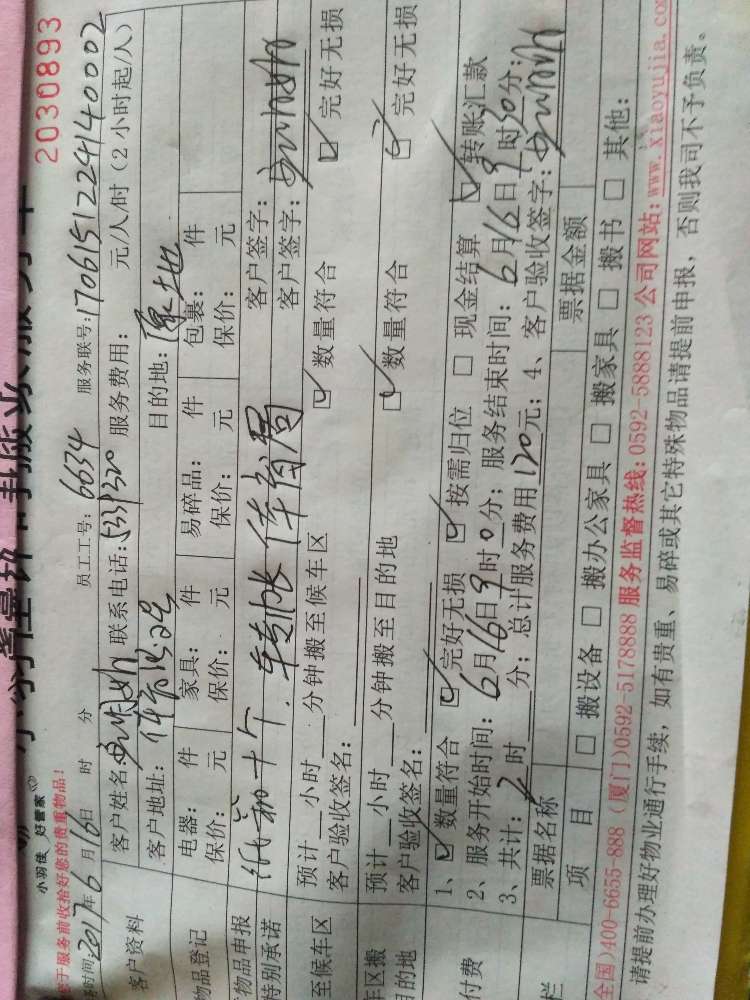 2030893
小羽佳 好管家
于服务前收拾好您的贵重物品!
时间:2017年6月16日 时 分 员工工号:6634 服务联号:1706151224140002
客户资料
客户姓名: 联系电话:5331320 服务费用: 元/人/时(2小时起/人)
客户地址:体育路2号 目的地:原地
物品登记
电器: 件 家具: 件 易碎品: 件 包裹: 件
保价: 元 保价: 元 保价: 元 保价: 元
物品申报
特别承诺
纸箱十个. 体育局
客户签字:
至候车区
预计 小时 分钟搬至候车区 数量符合 完好无损
客户验收签名: 客户签字:
车区搬
目的地
预计 小时 分钟搬至目的地 数量符合 完好无损
客户验收签名:
付费
1、 数量符合 完好无损 按需归位 现金结算 转账汇款
2、服务开始时间:6月16日9时0分; 服务结束时间:6月16日9时30分;
3、共计:2时 分; 总计服务费用120元; 4、客户验收签字:
栏
票据名称 票据金额
项 目 搬设备 搬办公家具 搬家具 搬书 其他:
全国)400-6655-888 (厦门)0592-5178888 服务监督热线:0592-5888123 公司网站:www.xiaoyujia.co
请提前办理好物业通行手续,如有贵重、易碎或其它特殊物品请提前申报,否则我司不予负责。